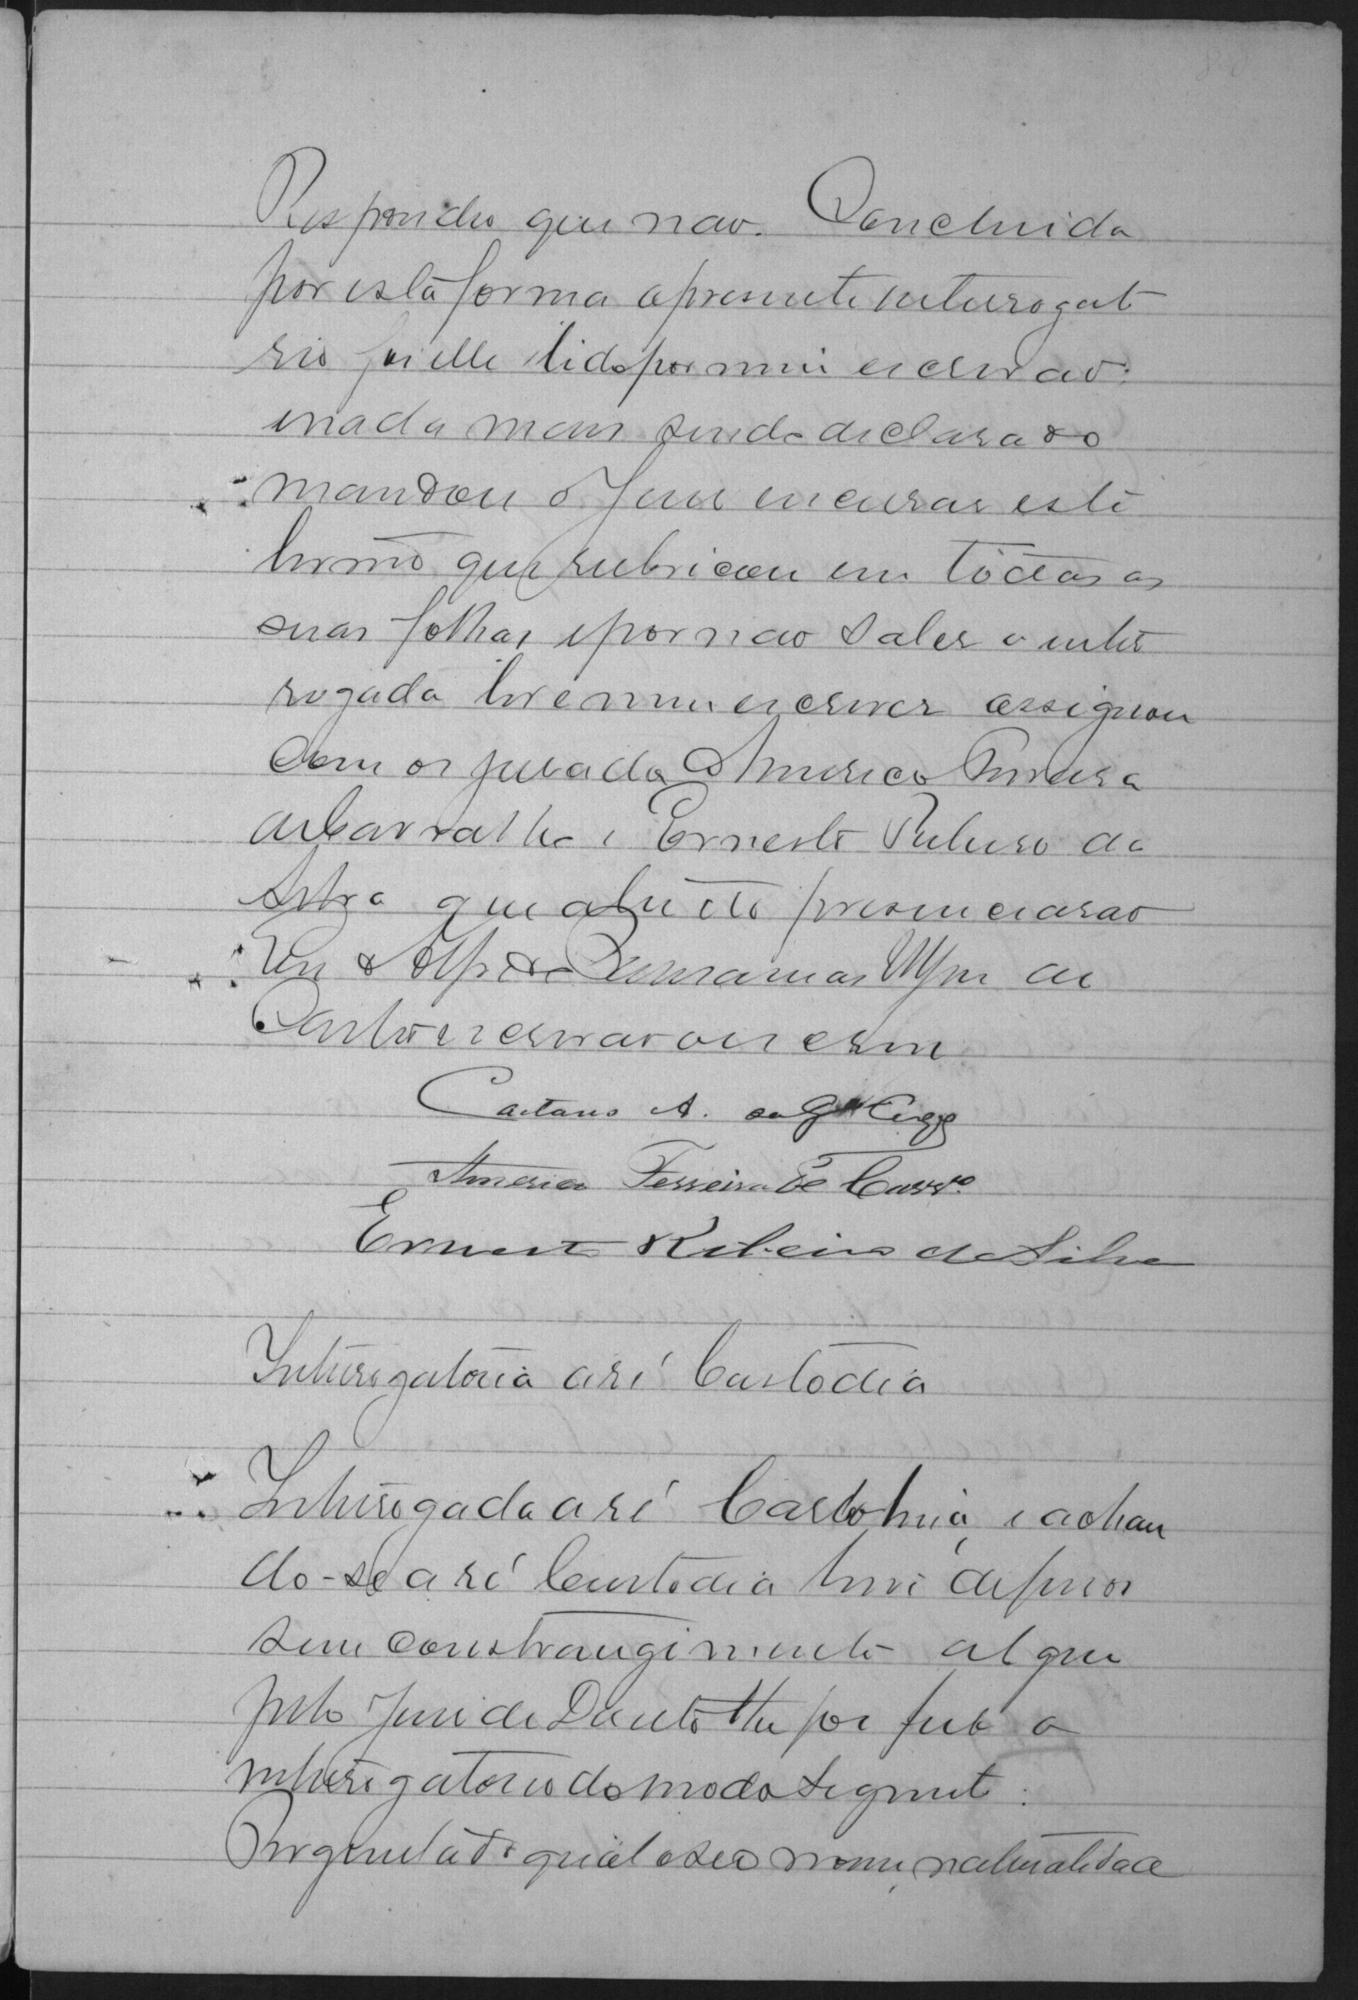 Respondeu que não. Concluida
por esta forma o presente interrogat
rio foi elle lido por mim escrivão:
e nada mais sendo declarado
mandou o Juiz encerrar este
termo que rubricou em todas as
suas folhas e por não saber a inter
rogada ler e nem escrever assignou
com os jurados Americo Ferreira
de Carvalho e Ernesto Ribeiro da
Silva que a tudo presenciarão
Eu de
Castro escrivão o escrevi
Caetano A. da
Americo Ferreira de Carvo.
Ernesto Ribeiro da Silva
Interrogatorio a ré Custodia
Interrogada a ré e achan
do-se a ré Custodia livre de ferros
sem constrangimento algum
pelo Juiz de Direito lhe foi feito o
interrogatorio do modo seguinte:
Perguntado qual o seu nome, naturalidade